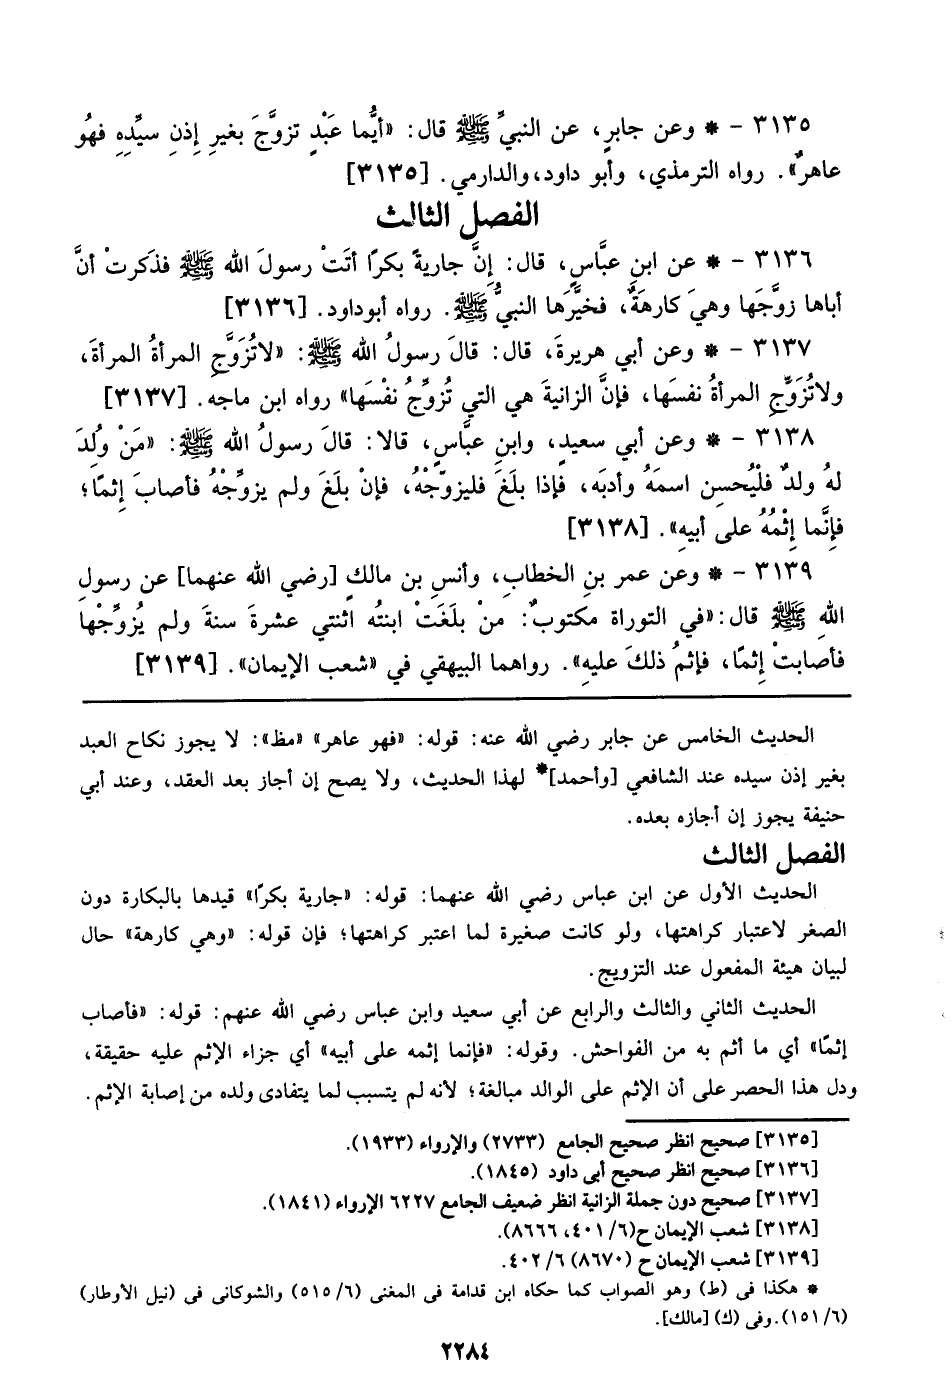 ٣١٣٥ - * وعن جابرٍ، عن النبيِّ ﷺ قال: «أيُّما عَبْدٍ تزوَّجَ بغيرِ إِذنِ سيِّدِهِ فهُو
عاهرٌ». رواه الترمذي، وأبو داود، والدارمي. [٣١٣٥]
الفصل الثالث
٣١٣٦ - * عن ابنِ عبَّاسٍ، قال: إِنَّ جاريةً بكرًا أتَتْ رسولَ الله ﷺ فذكَرتْ أنَّ
أباها زوَّجَها وهيَ كارهَةٌ، فخيَّرَها النبيُّ ﷺ. رواه أبوداود. [٣١٣٦]
٣١٣٧ - * وعن أبي هريرةَ، قال: قالَ رسولُ الله ﷺ: «لاتُزَوَّجِ المرأةُ المرأةَ،
ولاتُزَوِّجِ المرأةُ نفسَها، فإنَّ الزانيةَ هي التي تُزوِّجُ نفْسَها» رواه ابن ماجه. [٣١٣٧]
٣١٣٨ - * وعن أبي سعيدٍ، وابنِ عبَّاسٍ، قالا: قالَ رسولُ الله ﷺ: «مَنْ وُلِدَ
لهُ ولدٌ فلْيُحسِنِ اسمَهُ وأدبَه، فإذا بلَغَ فليزوّجْهُ، فإنْ بلَغَ ولم يزوِّجْهُ فأصابَ إِثمًا؛
فإنَّما إِثْمُهُ على أبيهِ». [٣١٣٨]
٣١٣٩ - * وعن عمر بنِ الخطاب، وأنسِ بن مالكٍ [رضي الله عنهما] عن رسولِ
اللهِ ﷺ قال: «في التوراة مكتوبٌ: منْ بلَغَتْ ابنتُه اثنتي عشرةَ سنةَ ولم يُزوِّجْها
فأصابتْ إِثمًا، فإثمُ ذلكَ عليهِ». رواهما البيهقي في «شعب الإيمان». [٣١٣٩]
الحديث الخامس عن جابر رضي الله عنه: قوله: «فهو عاهر» «مظ»: لا يجوز نكاح العبد
بغير إذن سيده عند الشافعي [وأحمد]* لهذا الحديث، ولا يصح إن أجاز بعد العقد، وعند أبي
حنيفة يجوز إن أجازه بعده.
الفصل الثالث
الحديث الأول عن ابن عباس رضي الله عنهما: قوله: «جارية بكرًا» قيدها بالبكارة دون
الصغر لاعتبار كراهتها، ولو كانت صغيرة لما اعتبر كراهتها؛ فإن قوله: «وهي كارهة» حال
لبيان هيئة المفعول عند التزويج.
الحديث الثاني والثالث والرابع عن أبي سعيد وابن عباس رضي الله عنهم: قوله: «فأصاب
إثمًا» أي ما أثم به من الفواحش. وقوله: «فإنما إثمه على أبيه» أي جزاء الإثم عليه حقيقة،
ودل هذا الحصر على أن الإثم على الوالد مبالغة؛ لأنه لم يتسبب لما يتفادى ولده من إصابة الإثم.
[٣١٣٥] صحيح انظر صحيح الجامع (٢٧٣٣) والإرواء (١٩٣٣).
[٣١٣٦] صحيح انظر صحيح أبى داود (١٨٤٥).
[٣١٣٧] صحيح دون جملة الزانية انظر ضعيف الجامع ٦٢٢٧ الإرواء (١٨٤١).
[٣١٣٨] شعب الإيمان ح(٦/ ٤٠١، ٨٦٦٦).
[٣١٣٩] شعب الإيمان ح (٨٦٧٠) ٦/ ٤٠٢.
* هكذا فى (ط) وهو الصواب كما حكاه ابن قدامة فى المغنى (٦/ ٥١٥) والشوكانى فى (نيل الأوطار)
(٦/ ١٥١). وفى (ك) [مالك].
٢٢٨٤